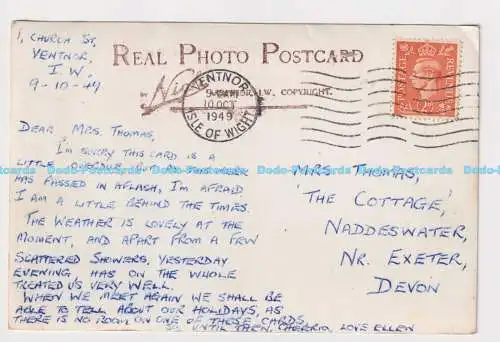 1, CHURCH ST,
VENTNOR,
I.W.
9-10-49
REAL PHOTO POSTCARD
VENTNOR, I.W. COPYRIGHT.
VENTNOR
9 - AM
10 OCT
1949
ISLE OF WIGHT
POSTAGE
REVENUE
DEAR MRS. THOMAS,
I'M SORRY THIS CARD IS A
LITTLE OVERDUE, BUT
HAS PASSED IN A FLASH, I'M AFRAID
I AM A LITTLE BEHIND THE TIMES.
THE WEATHER IS LOVELY AT THE
MOMENT, AND APART FROM A FEW
SCATTERED SHOWERS, YESTERDAY
EVENING, HAS ON THE WHOLE
TREATED US VERY WELL.
WHEN WE MEET AGAIN WE SHALL BE
ABLE TO TELL ABOUT OUR HOLIDAYS, AS
THERE IS NO ROOM ON ONE OF THESE CARDS.
SO UNTIL THEN, CHEERIO, LOVE ELLEN
MRS THOMAS,
'THE COTTAGE,'
NADDESWATER,
NR. EXETER,
DEVON
Dodo-Postcards Dodo-Postcards Dodo-Postcards Dodo-Postcards